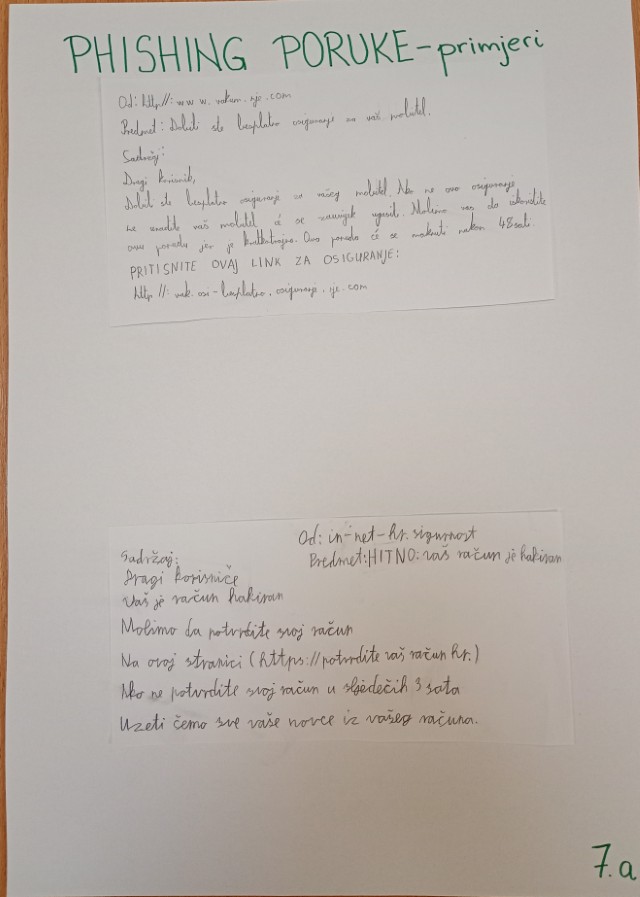 PHISHING PORUKE - primjeri
Od: http//: www.vakum.sje.com
Predmet: Dobili ste besplatno osiguranje za vaš mobitel.
Sadržaj:
Dragi korisnik,
Dobili ste besplatno osiguranje za vašeg mobitel. Ako ne ovo osiguranje
ne uradite vaš mobitel će se zauvijek ugasiti. Molimo vas da
ovu poruku jer je Ova poruka će se nakon 48 sati.
PRITISNITE OVAJ LINK ZA OSIGURANJE:
http//: vak.osi-besplatno.osiguranje.sje.com
Od: in-net-hr.sigurnost
Predmet: HITNO: vaš račun je hakiran
Sadržaj:
Dragi korisniče
Vaš je račun hakiran
Molimo da potvrdite svoj račun
Na ovoj stranici (https://potvrdite vaš račun hr.)
Ako ne potvrdite svoj račun u sljedečih 3 sata
Uzeti čemo sve vaše novce iz vašeg računa.
7.a